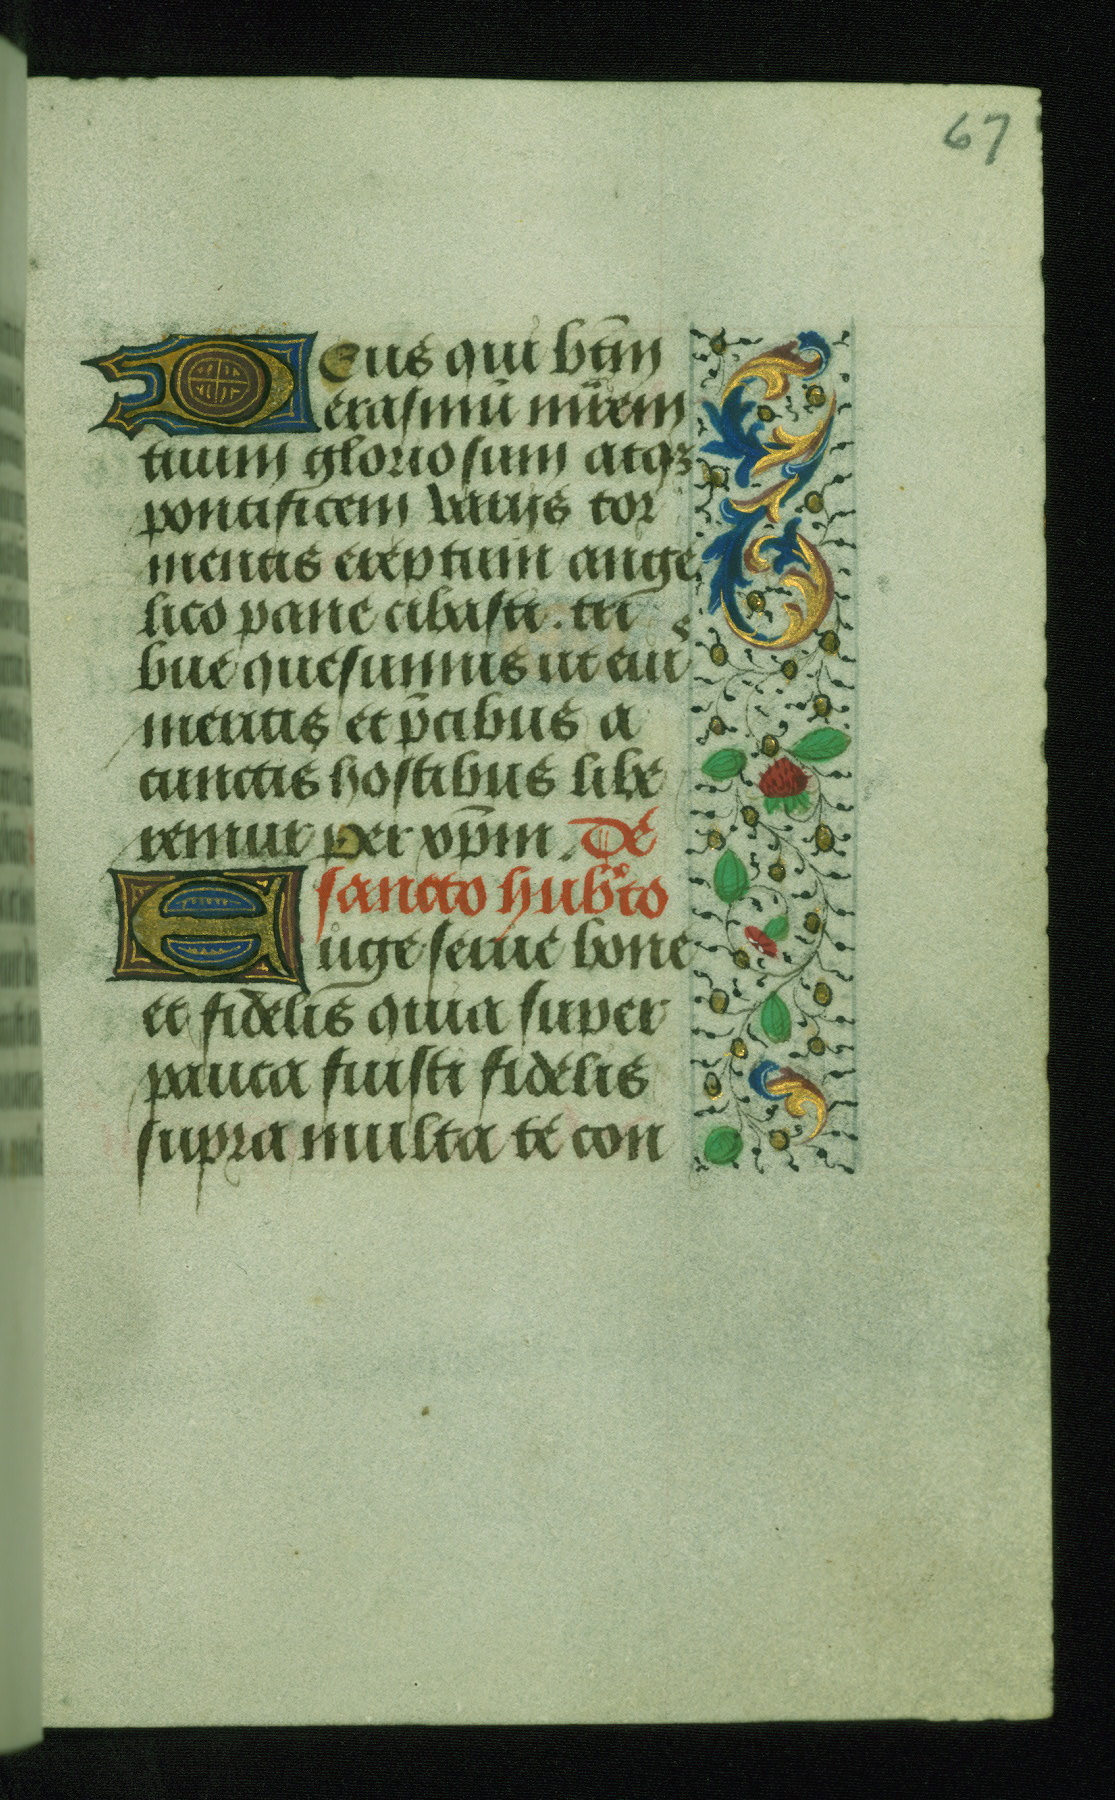 67
Deus qui btm̄
erasmū mr̄em
tuum gloriosum atqꝫ
pontificem varijs tor
mentis ereptum ange
lico pane cibasti. tri
bue quesumus ut eius
meritis et p̄cibus a
cunctis hostibus libe
remur Per xp̄m. De
sancto hub̄to
Euge serue bone
et fidelis quia super
pauca fuisti fidelis
supra multa te con